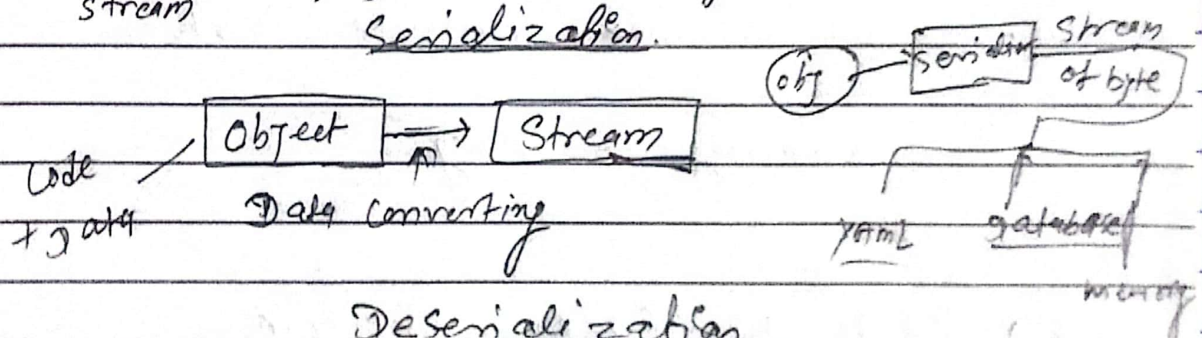 Stream
Serialization.
obj
serialize
Stream
of byte
Object
Stream
Code
+ data
Data Converting
YAML
database
memory
Deserialization